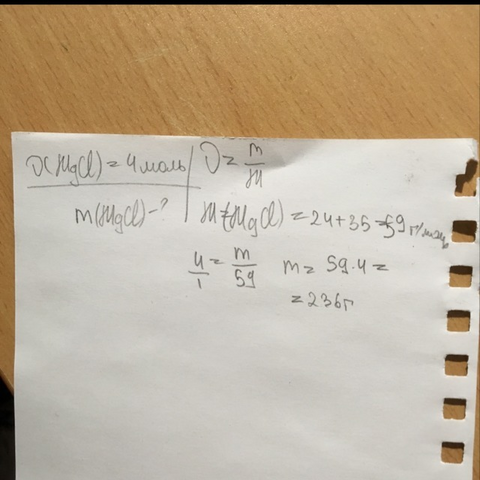 ν(MgCl) = 4 моль
m(MgCl) - ?
ν = m/M
M(MgCl) = 24 + 35 = 59 г/моль
4/1 = m/59 m = 59 · 4 =
= 236 г